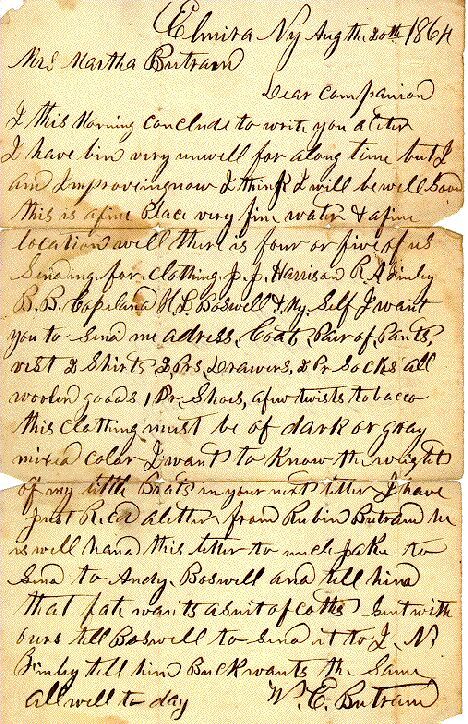 Elmira Ny Aug th 20th 1864
Mrs Martha Butram
Dear companion
I this Morning conclude to write you a letter
I have bin very unwell for along time but I
am Improveing now I think I will be well Soon
this is afine Place very fine water & afine
location well there is four or five of us
Sending for clothing J. J. Harris and R H
B. B. Copeland H L Boswell & My Self I want
you to Send me adress Coat Pair of Pants,
vest 2 Shirts 2 Prs Drawers, 2 Pr Socks all
woolen goods 1 Pr Shoes, afew twists tobacco
this clothing must be of dark or gray
mixed color I want to Know the weight
of my little Brats in your next letter I have
Just Recd aletter from Rubin Butram he
is well hand this letter to to
Send to Andy Boswell and till him
that wants asuit of coths Sent with
ours till Boswell to Send it to J. N.
till him Buck wants the Same
all well to day W. E. Butram